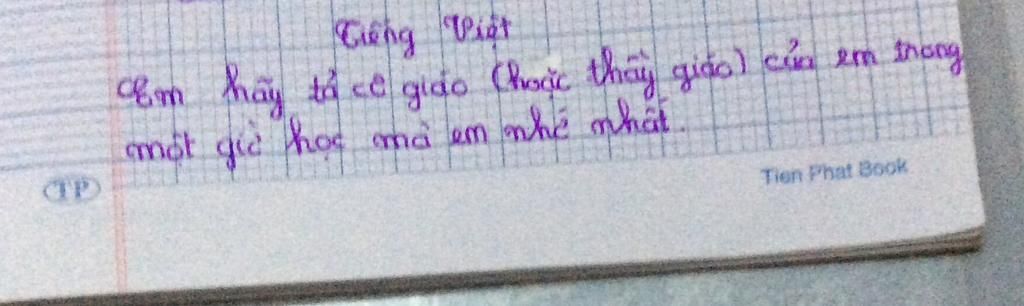 Tiếng Việt
Em hãy tả cô giáo (hoặc thầy giáo) của em trong
một giờ học mà em nhớ nhất.
TP
Tien Phat Book